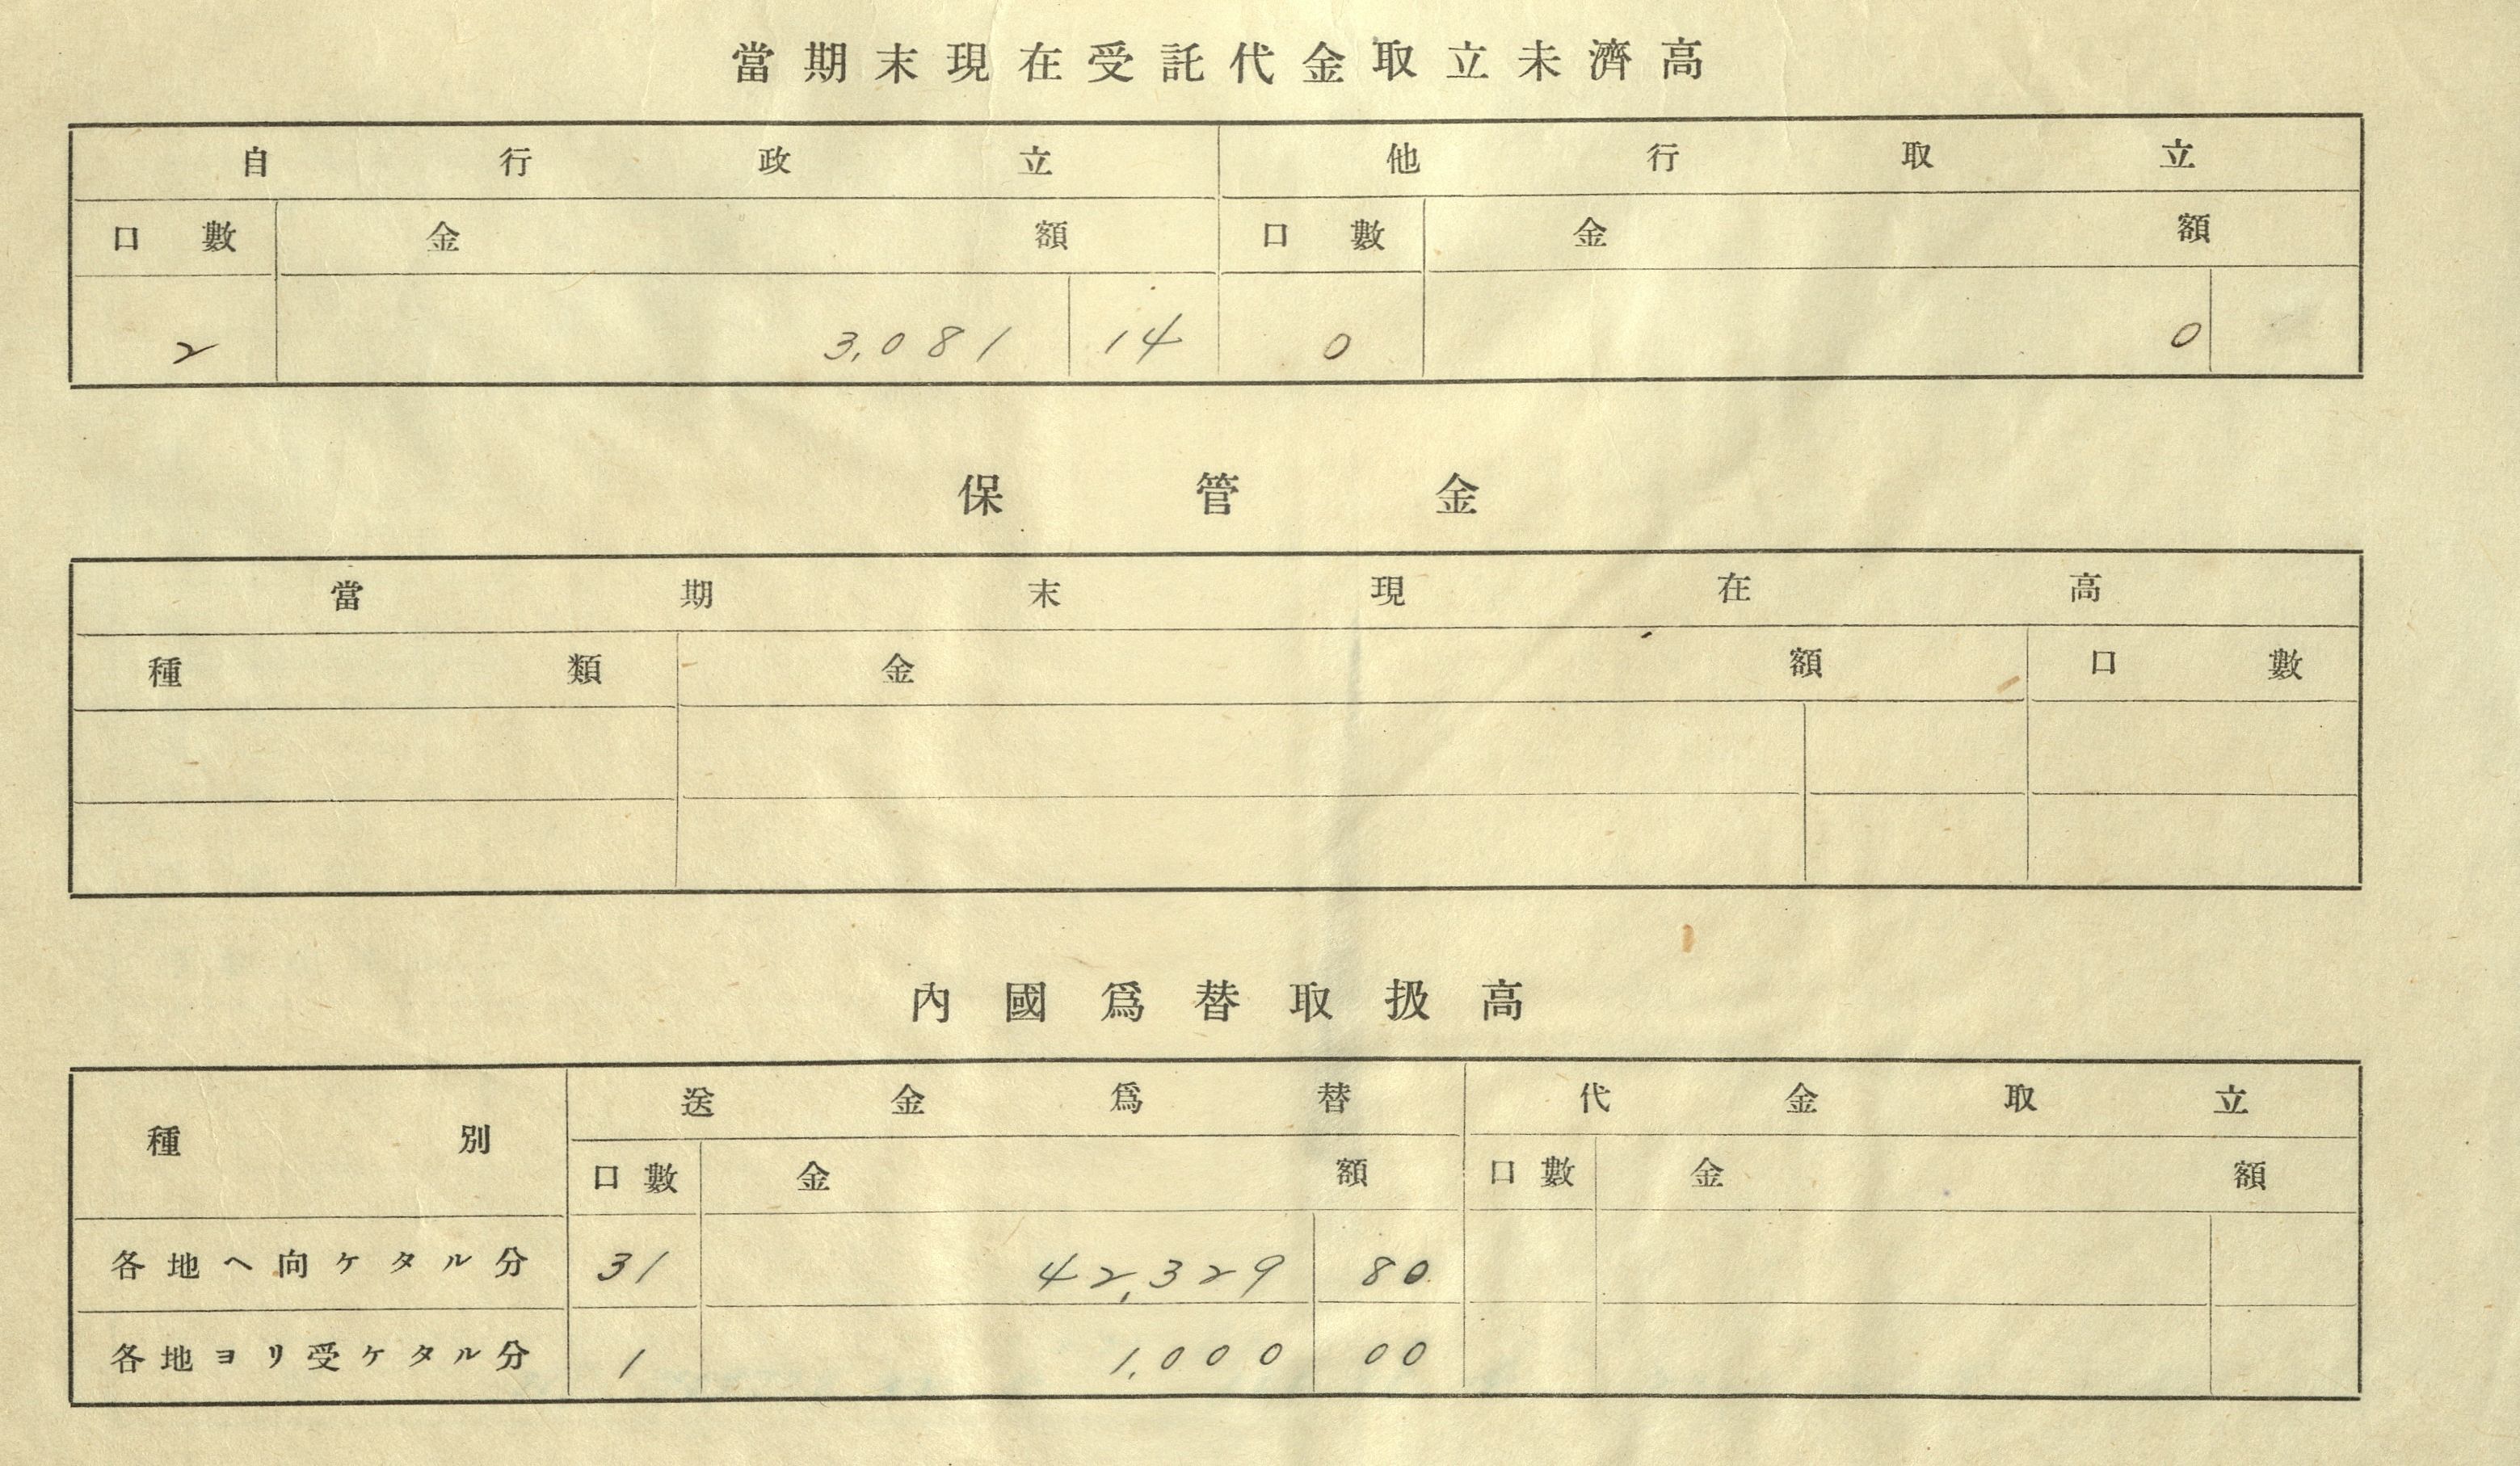 當期末現在受託代金取立未濟高
自行政立 他行取立
口數 金額 口數 金額
2 3,081 14 0 0
保管金
當期末現在高
種類 金額 口數
內國爲替取扱高
種別 送金爲替 代金取立
口數 金額 口數 金額
各地ヘ向ケタル分 31 42,329 80
各地ヨリ受ケタル分 1 1,000 00